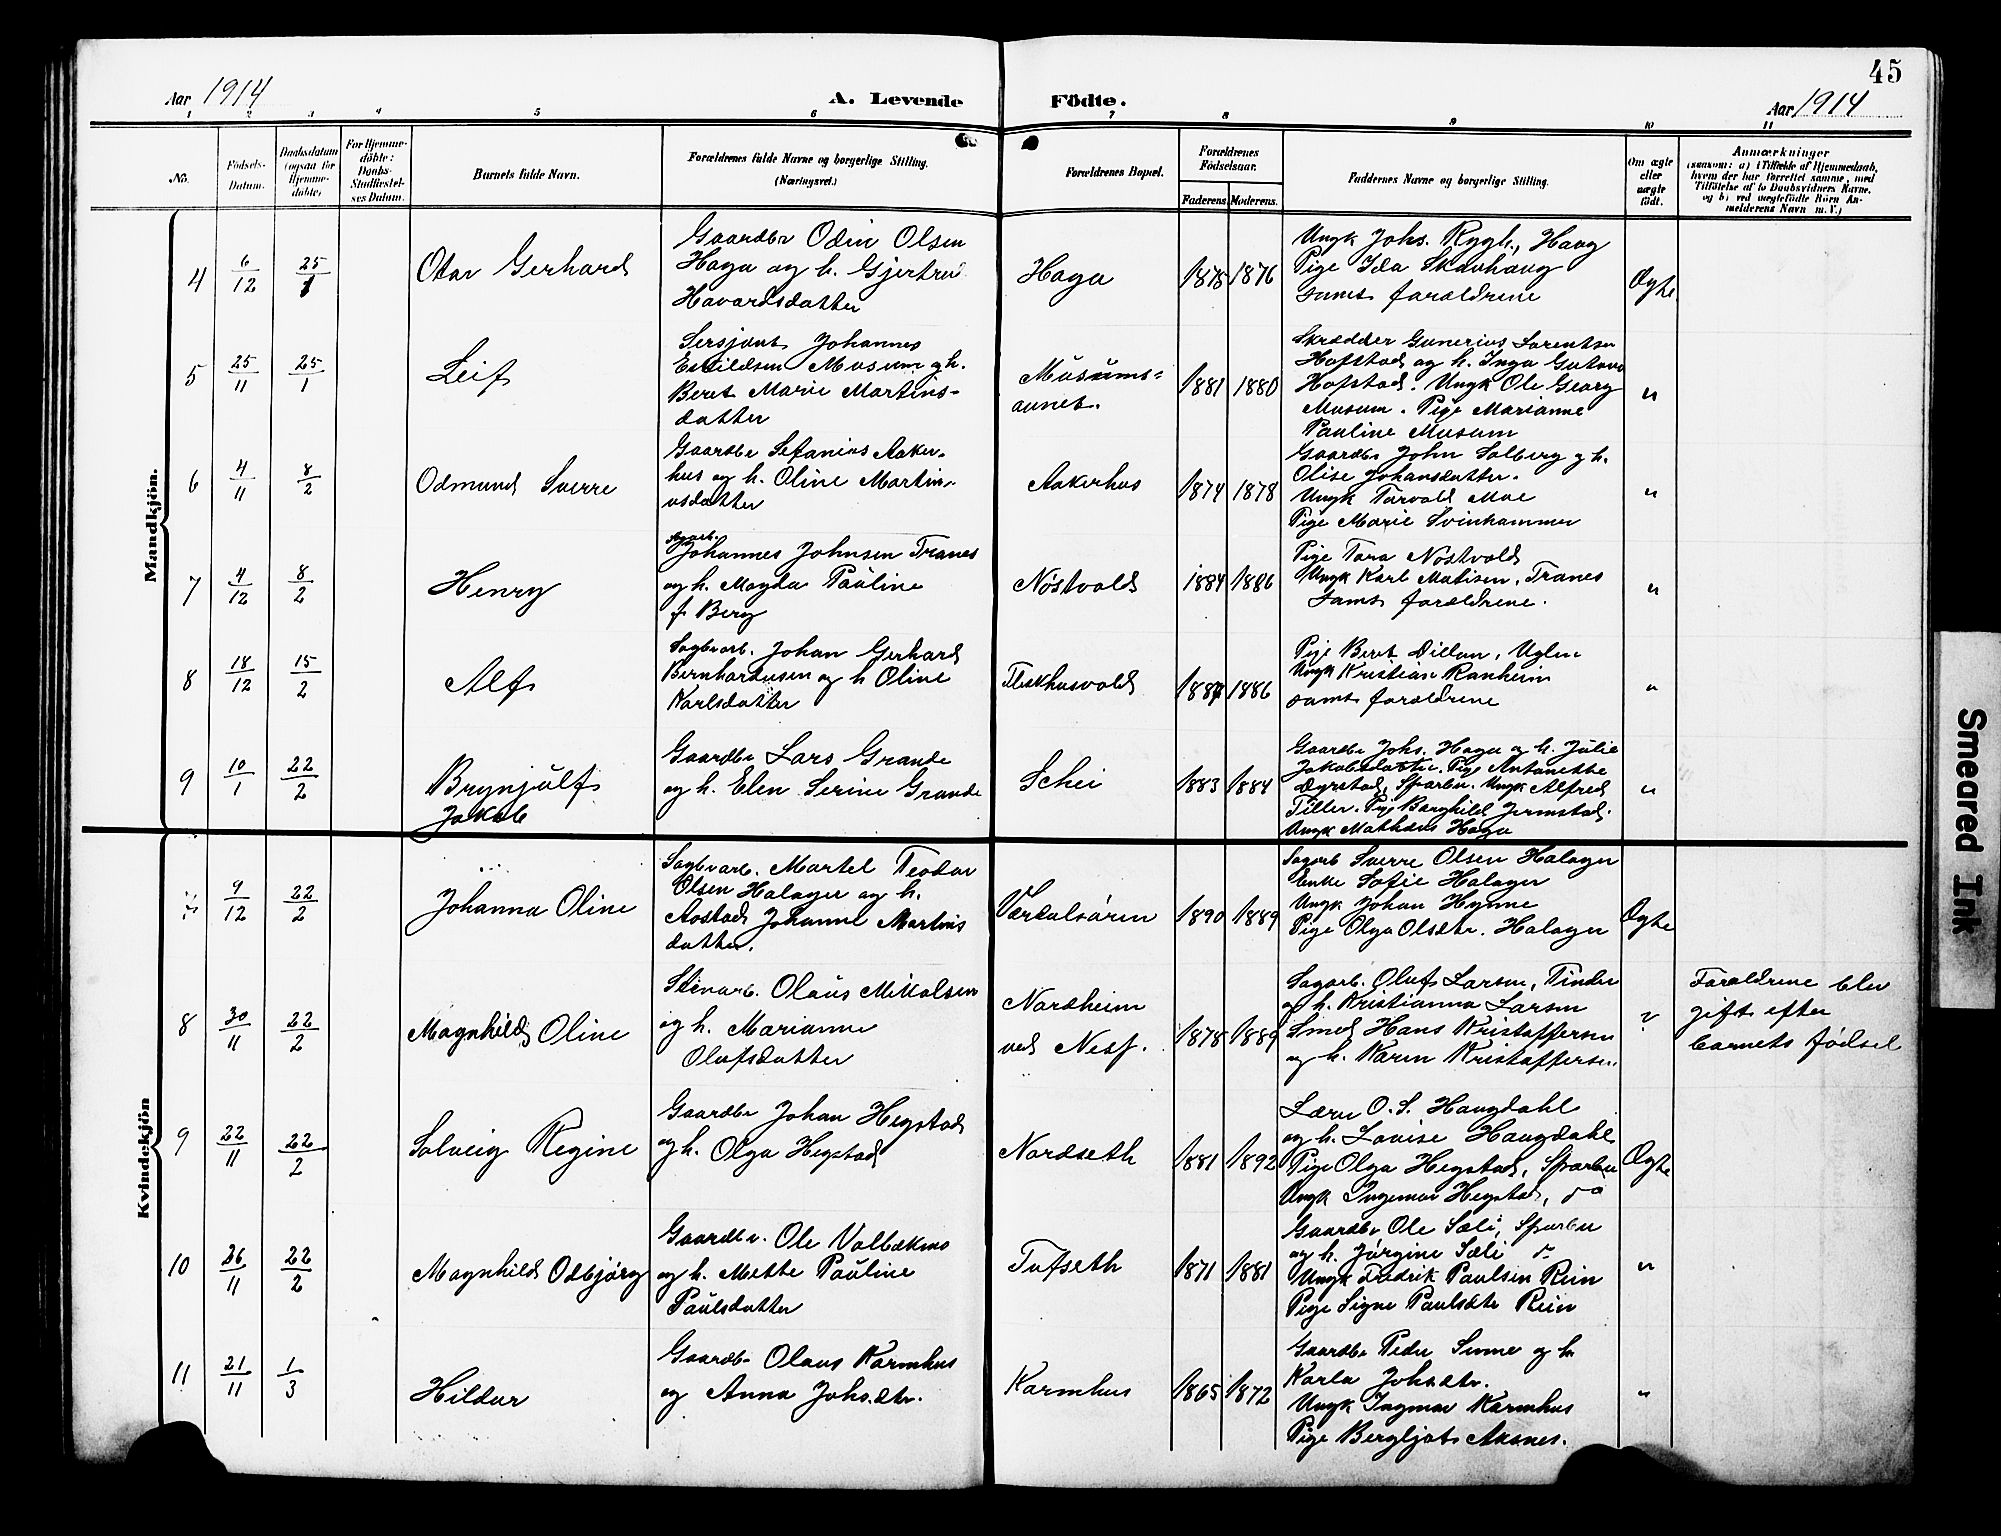 45
Aar 1914
A. Levende
Födte.
Aar 1914
1 2 3 4 5 6 7 8 9 10 11
No.
Födsels-
Datum.
Daabsdatum
(ogsaa for
Hjemme-
döbte)
For Hjemme-
döbte:
Daabs-
Stadfæstel-
ses Datum.
Barnets fulde Navn.
Forældrenes fulde Navne og borgerlige Stilling.
(Næringsvei.)
Forældrenes Bopæl.
Forældrenes
Födselsaar.
Faderens. Moderens.
Faddernes Navne og borgerlige Stilling.
Om ægte
eller
uægte
födt.
Anmærkninger
(saasom: a) i Tilfælde af Hjemmedaab,
hvem der har forrettet samme, med
Tilföielse af to Daabsvidners Navne,
og b) ved uægtefödte Börn An-
melderens Navn m. V.)
Mandkjön.
4 6/12 25/1 Otar Gerhard
Gaardbr Odin Olsen
Haga og h. Gjertrud
Havardsdatter
Haga 1875 1876
Ungk Johs. Rygh, Haug
Pige Ida Skavhaug
samt forældrene
Ægte
5 25/11 25/1 Leif
Sersjant Johannes
Eskildsen Musum og h.
Beret Marie Martins-
datter
Musums-
aunet. 1881 1880
Skrædder Gunerius Lorentsen
Hofstad og h. Inga Gustava
Hofstad. Ungk Ole Georg
Musum. Pige Marianne
Pauline Musum
"
6 4/11 8/2 Odmund Sverre
Gaardbr Stefanius Aaker-
hus og h. Oline Martin-
usdatter
Aakerhus 1874 1878
Gaardbr John Solberg og h.
Olise Johansdatter.
Ungk Torvald Moe
Pige Marie Svinhammer
"
7 4/12 8/2 Henry
Johannes Johnsen Tranes
og h. Magda Pauline
f. Berg
Nöstvold 1884 1886
Pige Tora Nöstvold
Ungk Karl Matisen, Tranes
samt forældrene.
"
8 18/12 15/2 Alf
Sagbrarb. Johan Gerhard
Bernhardsen og h Oline
Karlsdatter
Fleskhusvold 1886
Pige Beret Dillan, Uglen
Ungk Kristian Ranheim
samt forældrene
"
9 10/1 22/2 Brynjulf
Jakob
Gaardbr Lars Grande
og h. Elen Serine Grande
Schei 1883 1884
Gaardbr Johs. Haga og h. Julie
Jakobsdatter. Pige Antonette
Dyrstad, Sparbu. Ungk Alfred
Tiller. Pige Borghild Jermstad.
Ungk Mathæus Haga
"
Kvindekjön
7 9/12 22/2 Johanna Oline
Sagbrarb. Martel Teodor
Olsen Halager og h.
Aostad Johanne Martins
datter.
Værdalsören 1890 1889
Sagarb Sverre Olsen Halager
Enke Sofie Halager
Ungk Johan Hynne
Pige Olga Olsdtr. Halager
Ægte
8 30/11 22/2 Magnhild Oline
Stenarb. Olaus Mikalsen
og h. Marianne
Olufsdatter
Nordheim
ved Nesf. 1878 1889
Sagarb. Oluf Larsen, Tinden
og h. Kristianna Larsen
Smed Hans Kristoffersen
og h. Karen Kristoffersen
Forældrene blev
gift efter
barnets födsel
9 22/11 22/2 Solveig Regine
Gaardbr Johan Hegstad
og h. Olga Hegstad
Nordseth 1881 1892
Lærer O. S. Haugdahl
og h. Lovise Haugdahl
Pige Olga Hegstad, Sparbu
Ungk Ingemar Hegstad, do
Ægte
10 26/11 22/2 Magnhild Odbjörg
Gaardbr. Ole Volbækmo
og h. Mette Pauline
Paulsdatter
Tufseth 1871 1881
Gaardbr Ole Sæli, Sparbu
og h. Jörgine Sæli
Ungk Fredrik Paulsen Rein
Pige Signe Paulsdtr Rein
"
11 21/11 1/3 Hildur
Gaardb. Olaus Karmhus
og Anna Johsdtr.
Karmhus 1865 1872
Gaardbr Peder Sunne og h
Karla Johsdtr.
Ungk Ingmar Karmhus
Pige Bergljot Aksnes.
"
Smeared Ink